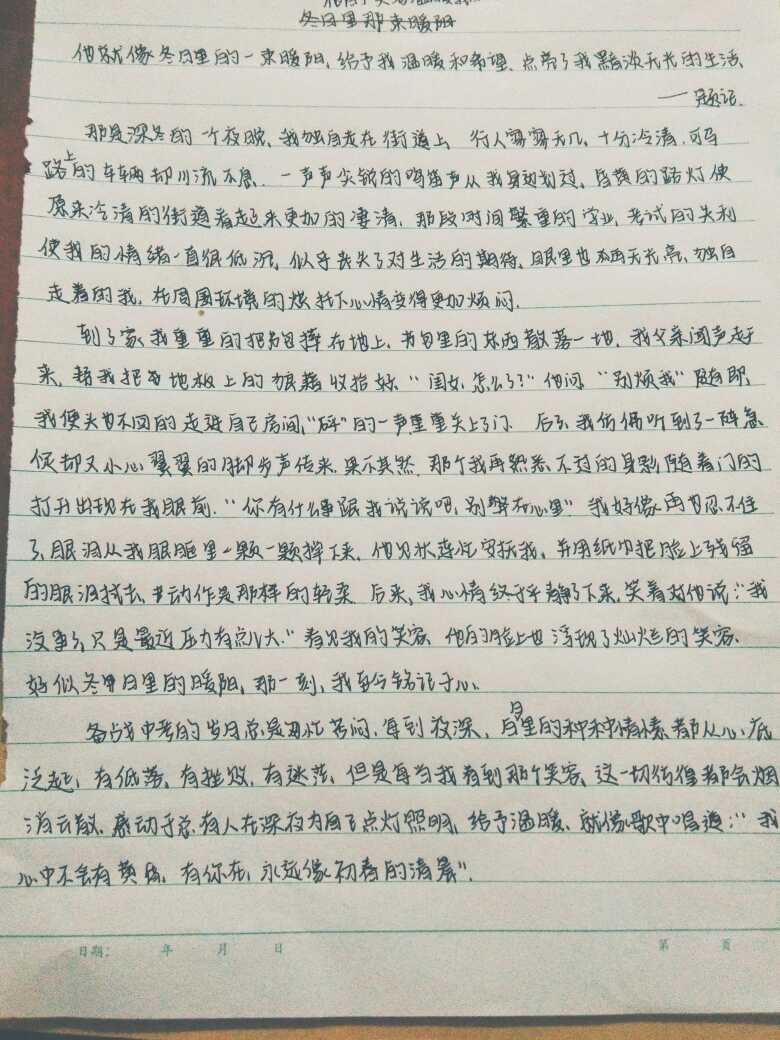 冬日里那束暖阳
他就像冬日里的一束暖阳,给予我温暖和希望,点亮了我黯淡无光的生活。
——题记
那是深冬的一个夜晚,我独自走在街道上,行人寥寥无几,十分冷清,可马
路上的车辆却川流不息,一声声尖锐的鸣笛声从我身边划过,昏黄的路灯使
原来冷清的街道看起来更加的凄清,那段时间繁重的学业,考试的失利
使我的情绪一直很低沉,似乎丧失了对生活的期待,眼里也再无光亮,独自
走着的我,在周围环境的烘托下心情变得更加烦闷。
到了家,我重重的把书包摔在地上,书包里的东西散落一地,我父亲闻声走
来,替我把地板上的狼藉收拾好“闺女,怎么了?”他问“别烦我”随即
我便头也不回的走进自己房间,“砰”的一声重重关上了门 后来,我仿佛听到了一阵急
促却又小心翼翼的脚步声传来,果不其然,那个我再熟悉不过的身影随着门的
打开出现在我眼前.“你有什么事跟我说说吧,别憋在心里”我好像再也忍不住
了,眼泪从我眼眶里一颗一颗掉下来,他见状连忙安抚我,并用纸巾把脸上残留
的眼泪拭去,动作是那样的轻柔 后来,我心情终于平静了下来,笑着对他说:“我
没事了,只是最近压力有点儿大.”看见我的笑容 他的脸上也浮现了灿烂的笑容,
好似冬日里的暖阳,那一刻,我至今铭记于心。
备战中考的岁月总是匆忙苦闷,每到夜深,白日里的种种情愫都从心底
泛起,有低落,有挫败,有迷茫,但是每当我看到那个笑容,这一切彷徨都会烟
消云散,感动于总有人在深夜为自己点灯照明,给予温暖,就像歌中唱道:“我
心中不会有黄昏,有你在,永远像初春的清晨”.
日期: 年 月 日 第 页